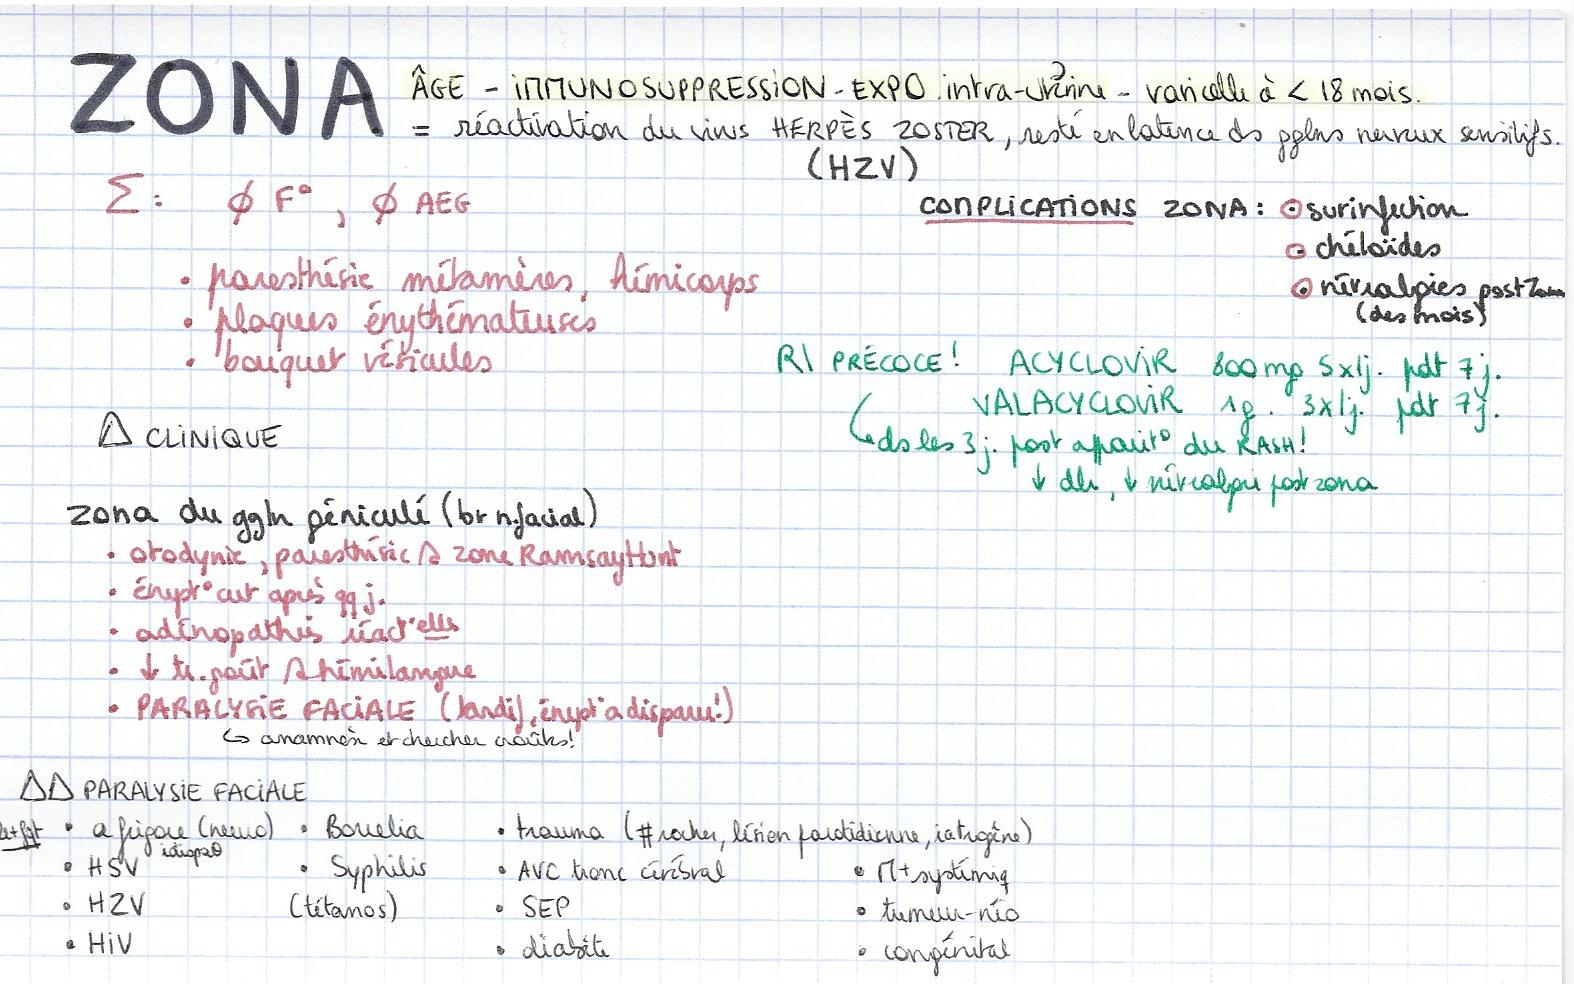 ZONA
ÂGE - IMMUNOSUPPRESSION - EXPO intra-utérine - varicelle à < 18 mois.
= réactivation du virus HERPÈS ZOSTER, resté en latence ds gglns nerveux sensitifs.
(HZV)
Σ: ∅ F°, ∅ AEG
• paresthésie métamères, hémicorps
• plaques érythémateuses
• bouquet vésicules
COMPLICATIONS ZONA: surinfection
chéloïdes
névralgies post zona
(des mois)
R\ PRÉCOCE! ACYCLOVIR 800mg 5x/j. pdt 7j.
VALACYCLOVIR 1g. 3x/j. pdt 7j.
ds les 3j. post apparit° du RASH!
↓ dlr, ↓ névralgie post zona
Δ CLINIQUE
zona du ggln géniculé (br n.facial)
• otodynie, paresthésie zone Ramsay Hunt
• érupt° cut après qq j.
• adénopathies réact°elles
• ↓ tr. goût hémilangue
• PARALYSIE FACIALE (tardif, érupt° a disparu!)
↳ anamnèse et chercher croûtes!
ΔΔ PARALYSIE FACIALE
le + fqt • a frigore (neuro)
• HSV
• HZV
• HiV
• Borrelia
• Syphilis
(tétanos)
• trauma (# rocher, lésion parotidienne, iatrogène)
• AVC tronc cérébral
• SEP
• diabète
• M+ systémiq
• tumeur-néo
• congénital